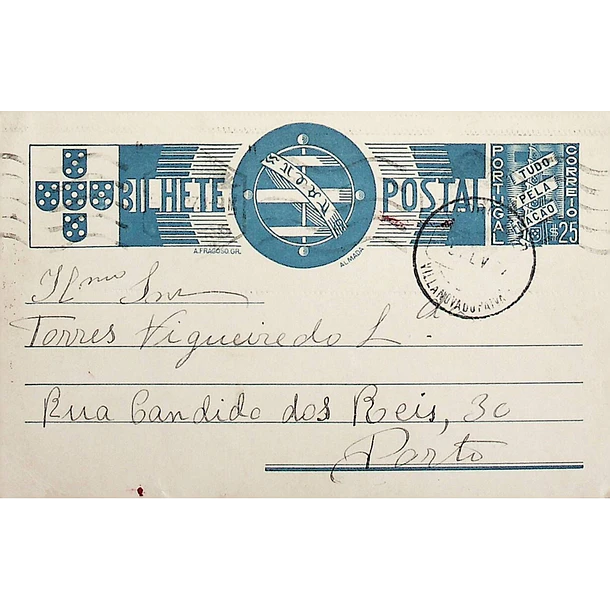 BILHETE POSTAL
PORTUGAL
CORREIO
TUDO
PELA
NAÇÃO
$25
A. FRAGOSO GR.
ALMADA
VILLA NOVA DO PAIVA
Ilmo Snr
Torres Vigueiredo L.da
Rua Candido dos Reis, 30
Porto